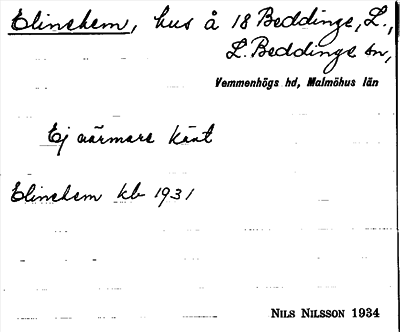 Elinehem, hus å 18 Beddinge, L.,
L. Beddinge sn,
Vemmenhögs hd, Malmöhus län
Ej närmare känt
Elinehem kb 1931
NILS NILSSON 1934